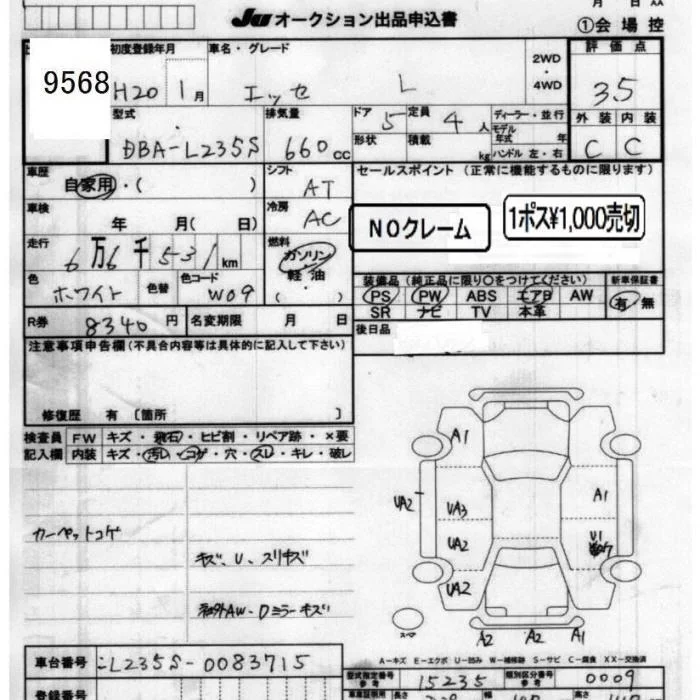 月 日 AA
JU オークション出品申込書
①会場控
9568
初度登録年月 車名・グレード 2WD・4WD 評価点
H20 1月 エッセ L 3.5
型式 排気量 ドア 5 定員 4人 ディーラー・並行
モデル年式 年
外装 内装
DBA-L235S 660cc 形状 積載 kg ハンドル 左・右 C C
車歴 シフト セールスポイント (正常に機能するものに限ります)
自家用・( ) AT
車検 冷房
年 月( 日) AC
NOクレーム
1ポス¥1,000売切
走行 燃料
6万6千531km ガソリン
軽・油
( )
色 色替 色コード
ホワイト W09
装備品 (純正品に限り○をつけてください) 新車保証書
PS PW ABS エアB AW 有・無
SR ナビ TV 本革
R券 8340円 名変期限 月 日
後日品
注意事項申告欄(不具合内容等は具体的に記入して下さい)
修復歴 有 〔箇所 〕
検査員 FW キズ・飛石・ヒビ割・リペア跡・×要
記入欄 内装 キズ・汚れ・コゲ・穴・スレ・キレ・破レ
カーペットコゲ
キズ、U、スリキズ
社外AW・Dミラーキズ
A1
UA2
UA3
A1
UA2
U1
UA2
スペア
A2 A2 A1
A-キズ E-エクボ U-凹み W-補修跡 S-サビ C-腐食 XX-交換済
車台番号 L235S-0083715
型式指定番号 参考 15235 類別区分番号 参考 0009
登録番号
長さ 幅 高さ